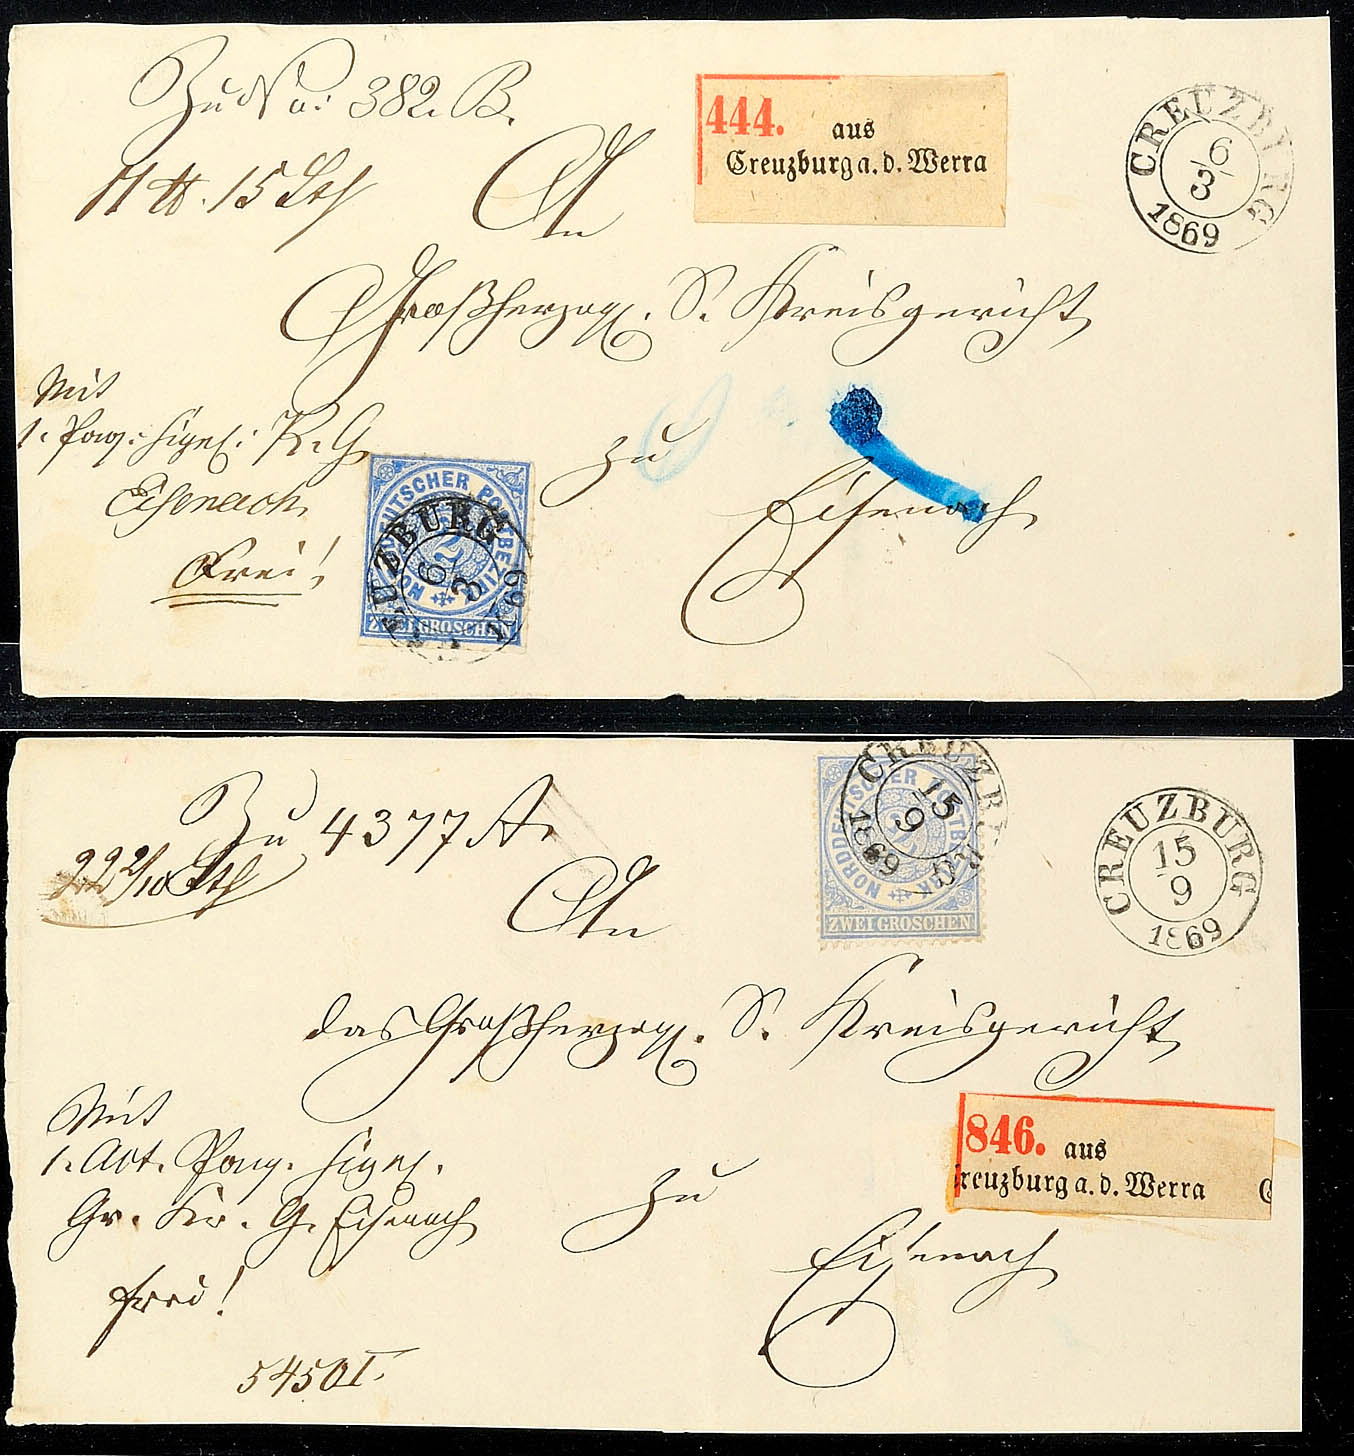 Zu No: 382. B.
11 ℔. 15 Lth
444. aus
Creuzburg a. d. Werra
CREUZBURG
6
3
1869
An
Großherzogl. S. Kreisgericht
Mit
1. Paq: sign: K. G.
Eisenach
Frei!
zu
Eisenach
NORDDEUTSCHER POSTBEZIRK
2
ZWEI GROSCHEN
CREUZBURG
6
3
1869
Zu 4377 A.
22 2/10 Lth
An
NORDDEUTSCHER POSTBEZIRK
ZWEI GROSCHEN
CREUZBURG
15
9
1869
CREUZBURG
15
9
1869
das Großherzogl. S. Kreisgericht
Mit
1. Act. Paq. sign.
Gr. Kr. G. Eisenach
frei!
zu
Eisenach
846. aus
Creuzburg a. d. Werra C
5450I.